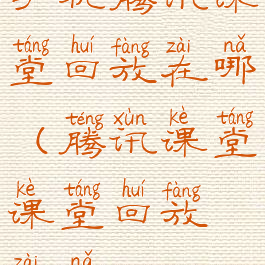 腾讯课
táng huí fàng zài nǎ
堂回放在哪
téng xùn kè táng
(腾讯课堂
kè táng huí fàng
课堂回放
zài nǎ